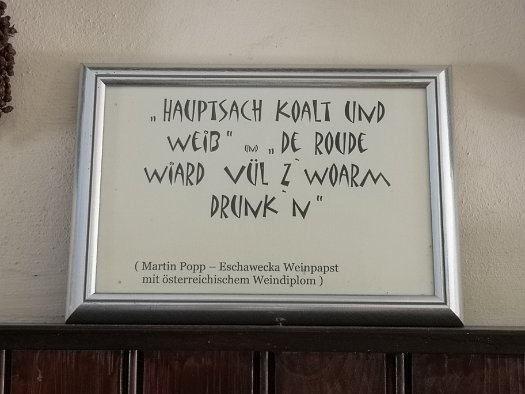 „HAUPTSACH KOALT UND
WEIß" UND „DE ROUDE
WIARD VÜL Z`WOARM
DRUNK`N"
( Martin Popp – Eschawecka Weinpapst
mit österreichischem Weindiplom )